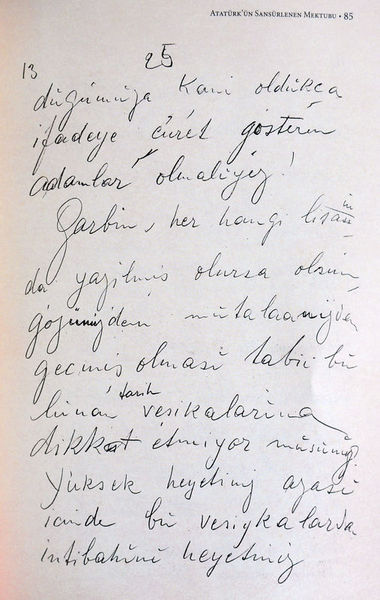 ATATÜRK'ÜN SANSÜRLENEN MEKTUBU • 85
13
25
düğümüza kani oldukca
ifadeye cüret gösteren
adamlar olmaliyiz!
Garbin, her hangi lisanin
da yazilmis olursa olsun,
gözünüzden mütalaanizdan
gecmis olmasi tabii bu
lunan tarih vesikalarina
dikkat etmiyor müsünüz
Yüksek heyetiniz azasi
icinde bu vesiykalarda
intibahini heyetiniz